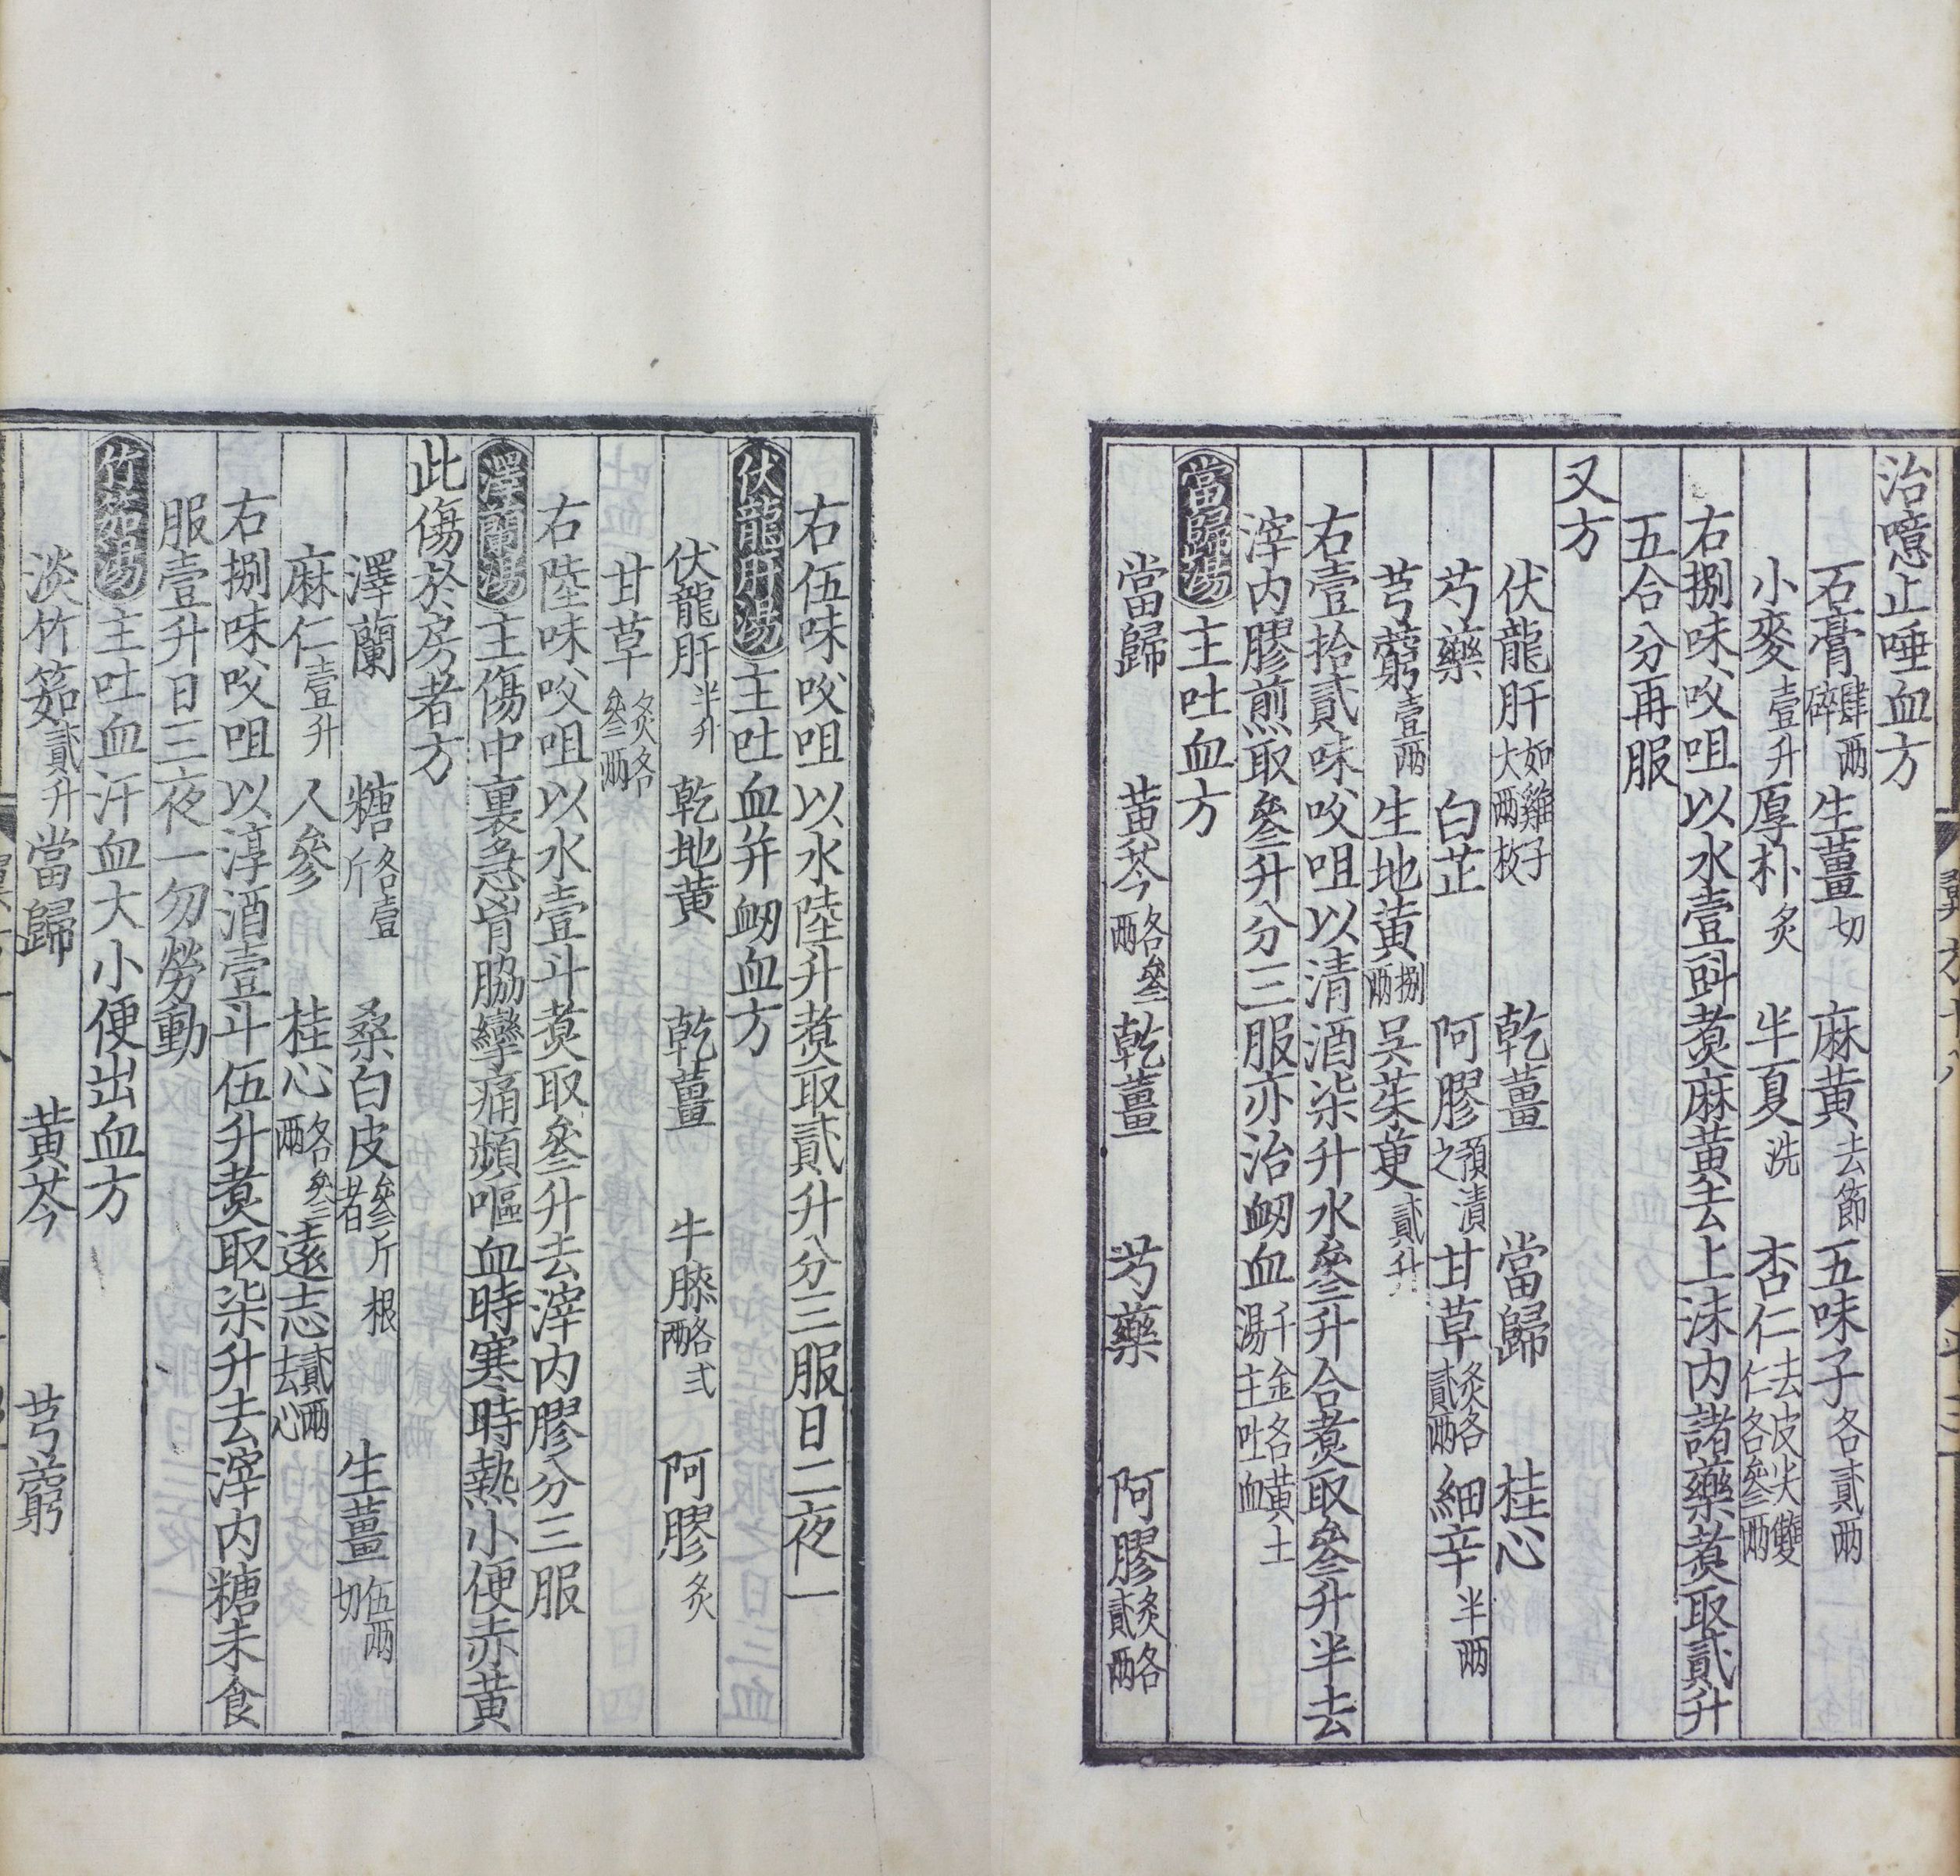 治噫止唾血方
石膏肆兩碎 生薑切 麻黃去節 五味子各貳兩
小麥壹升 厚朴炙 半夏洗 杏仁去皮尖雙仁各叄兩
右捌味㕮咀以水壹㪷煑麻黃去上沫内諸藥煑取貳升
五合分再服
又方
伏龍肝如雞子大兩枚 乾薑 當歸 桂心
芍藥 白芷 阿膠預漬之 甘草炙各貳兩 細辛半兩
芎藭壹兩 生地黃捌兩 吳茱萸貳升
右壹拾貳味㕮咀以清酒柒升水叄升合煑取叄升半去
滓内膠煎取叄升分三服亦治衂血千金名黃土湯主吐血
當歸湯主吐血方
當歸 黃芩各叄兩 乾薑 芍藥 阿膠炙各貳兩
右伍味㕮咀以水陸升煑取貳升分三服日二夜一
伏龍肝湯主吐血并衂血方
伏龍肝半升 乾地黃 乾薑 牛膝各弍兩 阿膠炙
甘草炙各叄兩
右陸味㕮咀以水壹斗煑取叄升去滓内膠分三服
澤蘭湯主傷中裏急胷脇攣痛頻嘔血時寒時熱小便赤黃
此傷於房者方
澤蘭 糖各壹斤 桑白皮叄斤根者 生薑伍兩切
麻仁壹升 人參 桂心各叄兩 遠志貳兩去心
右捌味㕮咀以淳酒壹斗伍升煑取柒升去滓内糖未食
服壹升日三夜一勿勞動
竹茹湯主吐血汗血大小便出血方
淡竹筎貳升 當歸 黃芩 芎藭